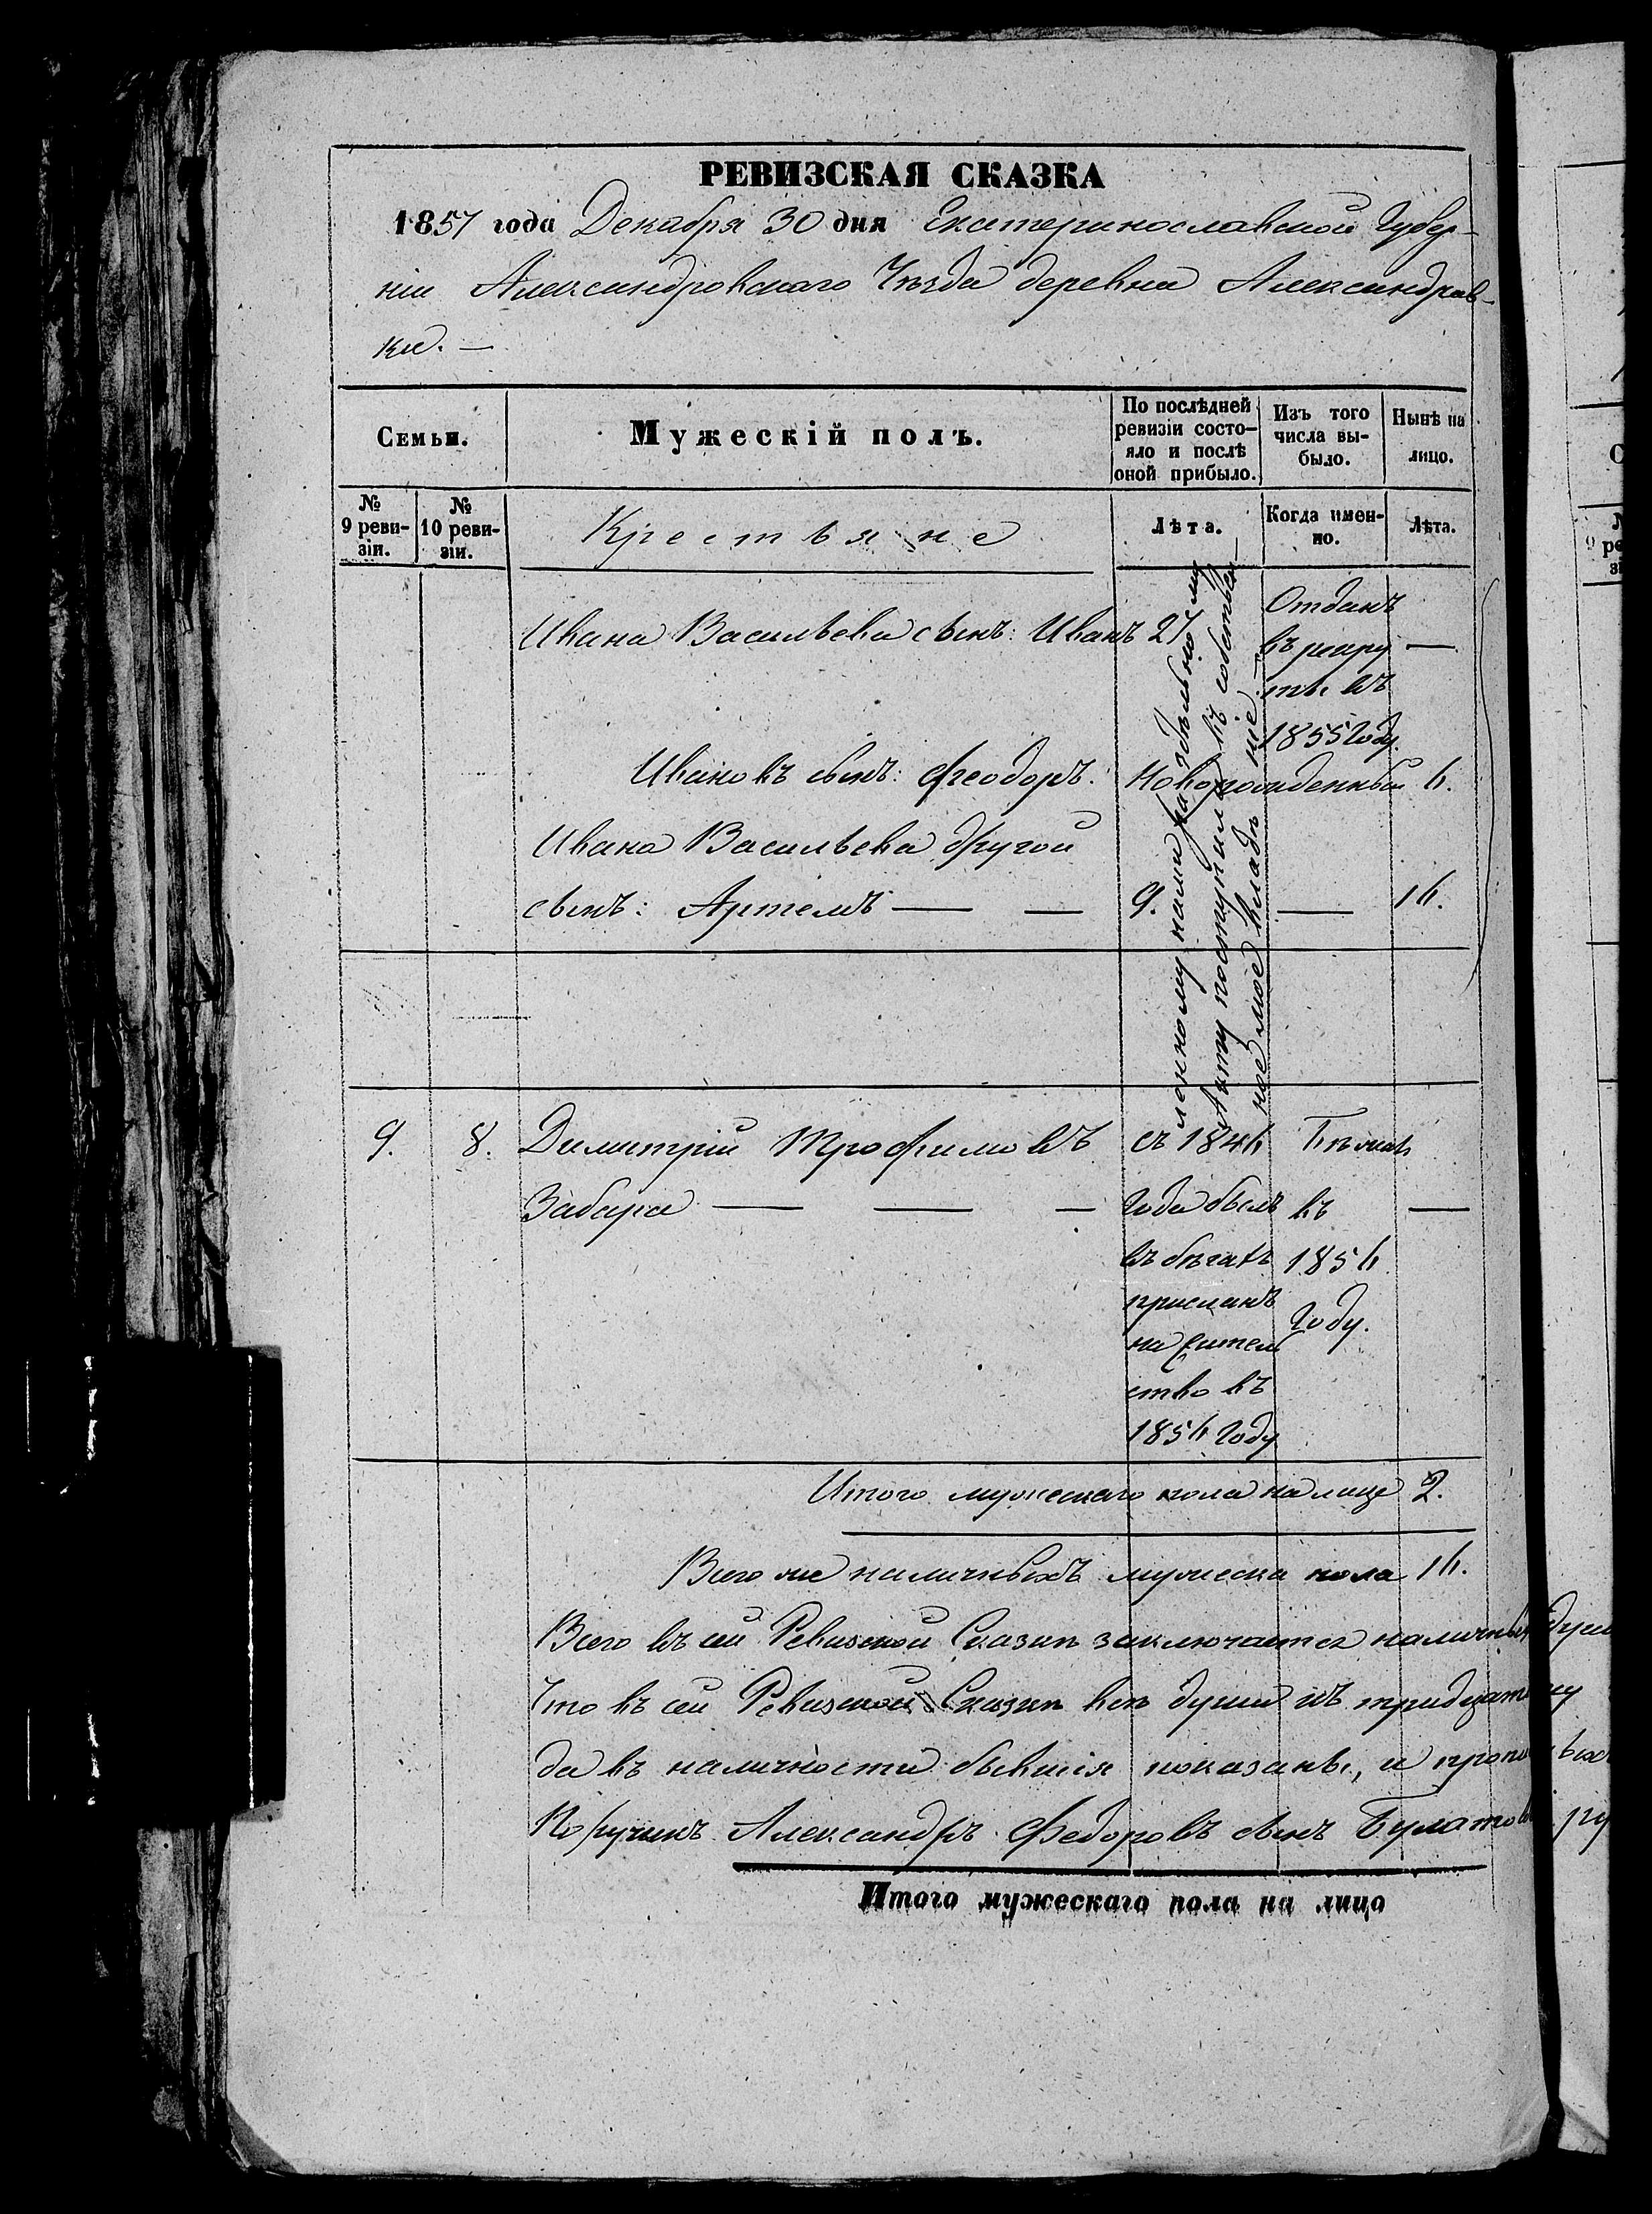 РЕВИЗСКАЯ СКАЗКА
1857 года Декабря 30 дня Екатеринославской Губер-
ніи Александровскаго Уѣзда деревни Александров-
ки. —
Семьи.
Мужескій полъ.
По послѣдней ревизіи состо-
яло и послѣ оной прибыло.
Изъ того числа вы-
было.
Нынѣ на лицо.
№ 9 реви-
зіи.
№ 10 реви-
зіи.
Крестьяне
Лѣта.
Когда имен-
но.
Лѣта.
Ивана Васильева сынъ: Иванъ 27
Отданъ
въ рекру
ты въ
1855 Году.
—
Ивановъ сынъ: Феодоръ. Новорожденный 4.
Ивана Васильева другой
сынъ: Артемъ — — 9. — 14.
ленному нами раздѣльному
Акту поступилъ въ собствен-
ное мое владѣніе.—
9. 8. Димитрій Трофимовъ
Забара — — —
съ 1844
Года былъ
въ бѣгахъ
присланъ
на жител
ство въ
1854 Году
Бѣжал
въ
1854
Году.
—
Итого мужескаго пола на лице 2.
Всего же наличныхъ мужеска пола 14.
Всего въ сей Ревизской Сказкѣ заключается наличныхъ душ
Что въ сей Ревизской Сказкѣ всѣ души
да въ наличности бывшія показаны, и
Поручикъ Александръ Федоровъ сынъ Булатов
Итого мужескаго пола на лицо